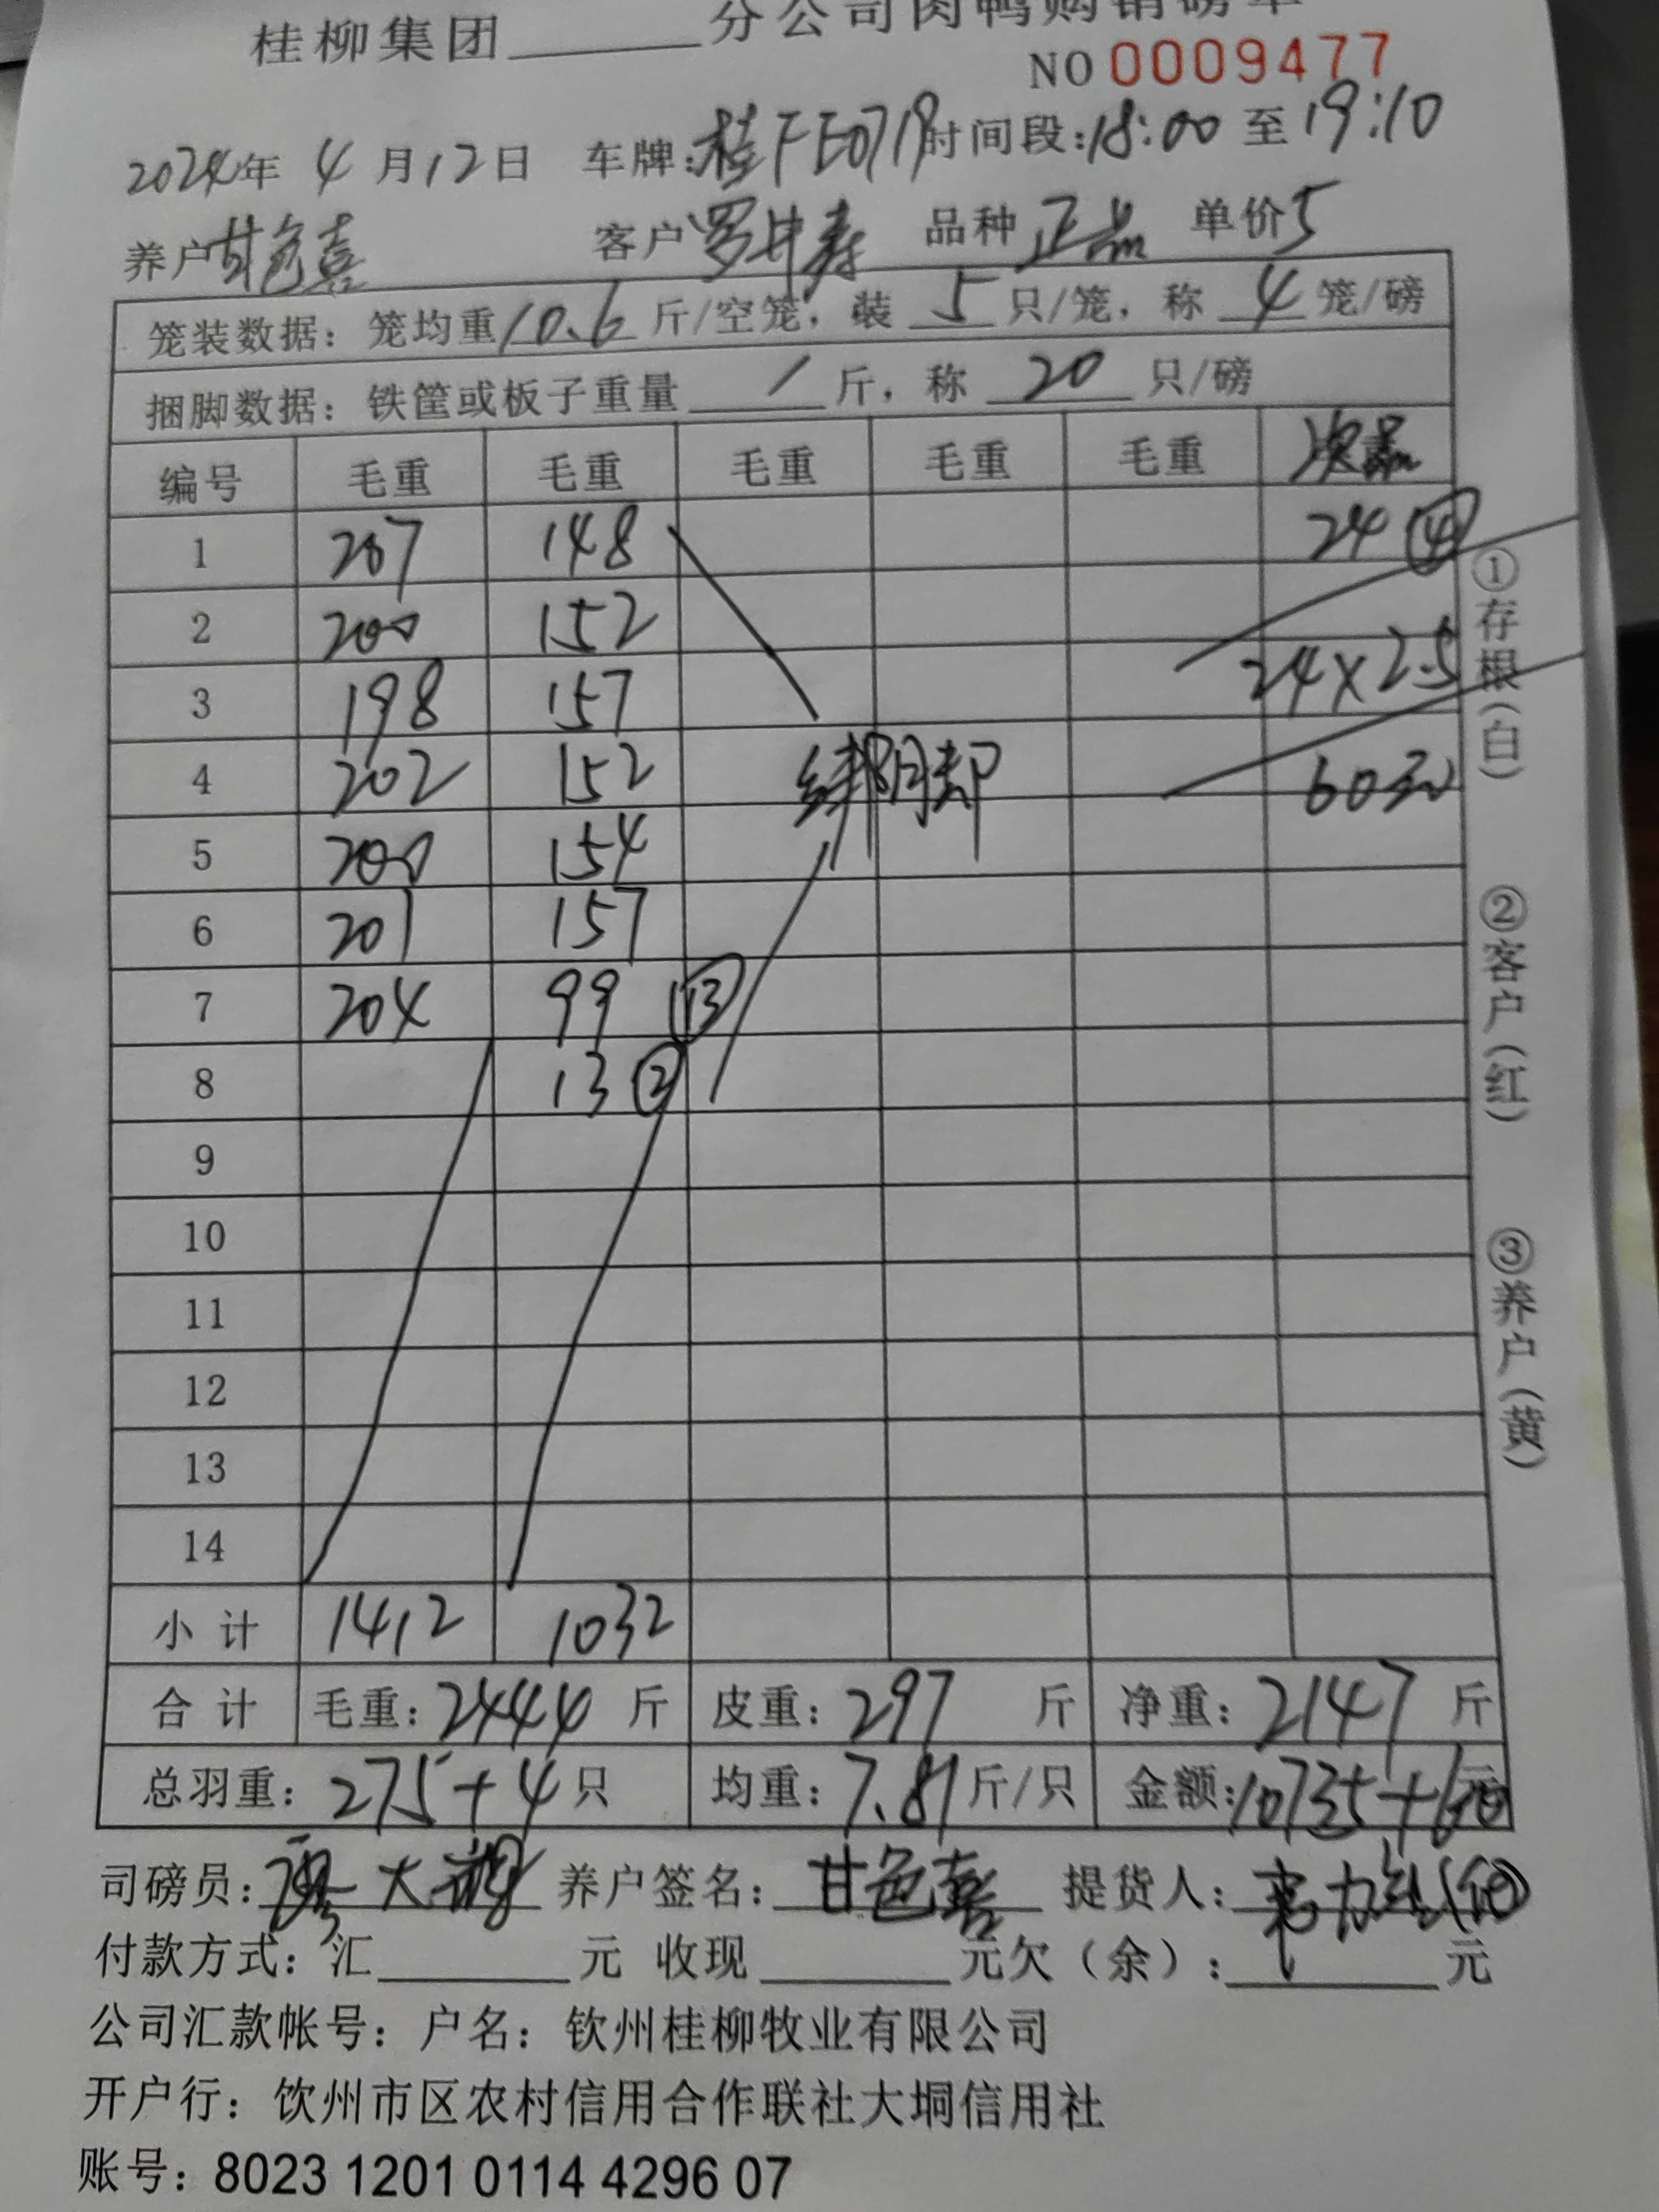 桂柳集团______分公司肉鸭购销磅单
NO 0009477
2024年 4月12日 车牌:桂FE0719 时间段:18:00 至 19:10
养户甘色喜 客户 罗 寿 品种 正品 单价5
笼装数据：笼均重10.6斤/空笼，装 5 只/笼，称 4 笼/磅
捆脚数据：铁筐或板子重量 / 斤，称 20 只/磅
编号 毛重 毛重 毛重 毛重 毛重 次品
1 207 148 24 ④
2 200 152
3 198 157 24×2.5
4 202 152 绑 脚 60元
5 200 154
6 201 157
7 204 99 ⑬
8 13 ②
9
10
11
12
13
14
小计 1412 1032
合计 毛重：2444 斤 皮重：297 斤 净重：2147 斤
总羽重：275+4只 均重：7.81斤/只 金额:10735+60元
司磅员: 大 养户签名：甘色喜 提货人：
付款方式：汇______元 收现______元欠（余）:______元
公司汇款帐号：户名：钦州桂柳牧业有限公司
开户行：饮州市区农村信用合作联社大垌信用社
账号：8023 1201 0114 4296 07
①存根(白)
②客户(红)
③养户(黄)